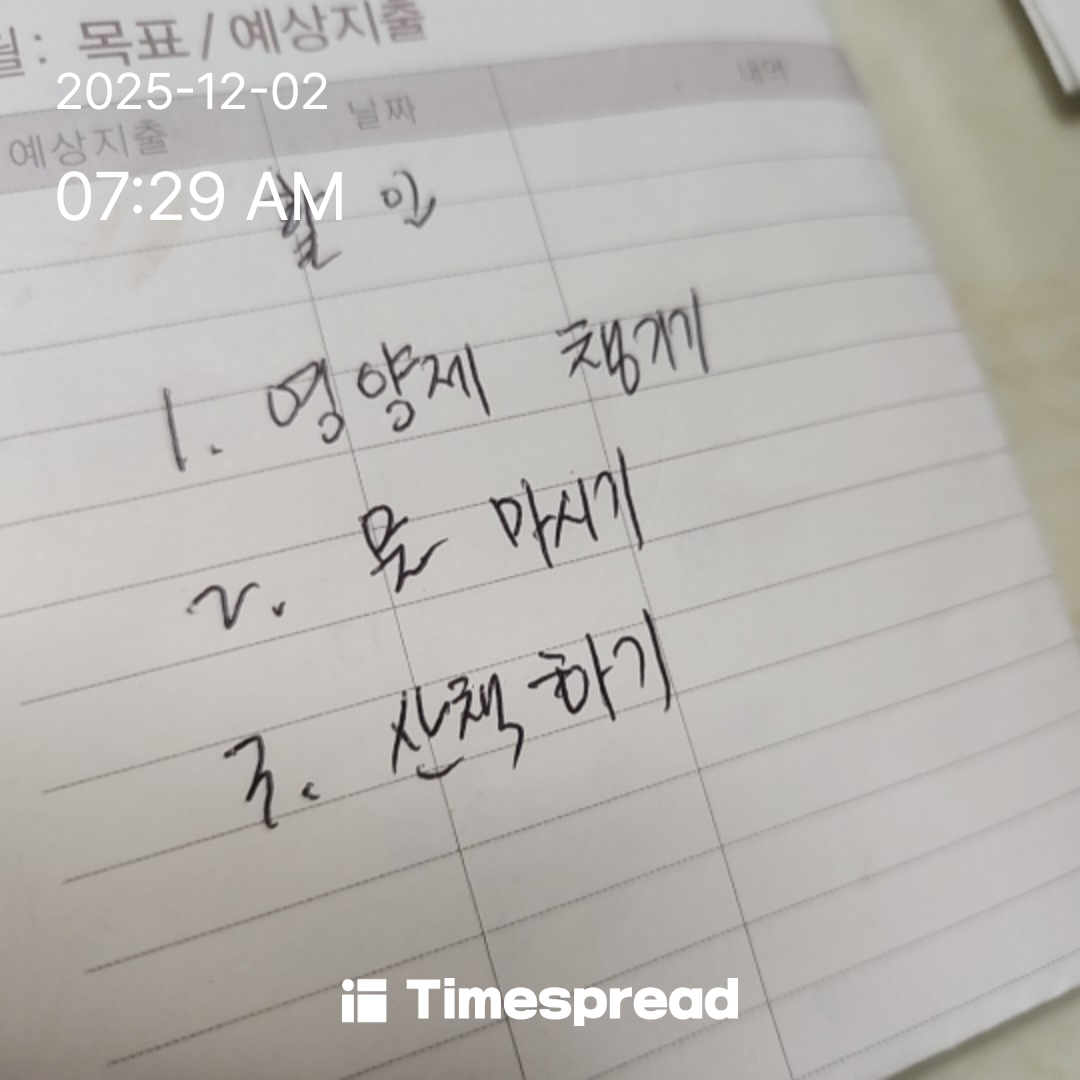 월: 목표 / 예상지출
2025-12-02
예상지출 날짜 내역
07:29 AM
할 일
1. 영양제 챙기기
2. 물 마시기
3. 산책하기
Timespread